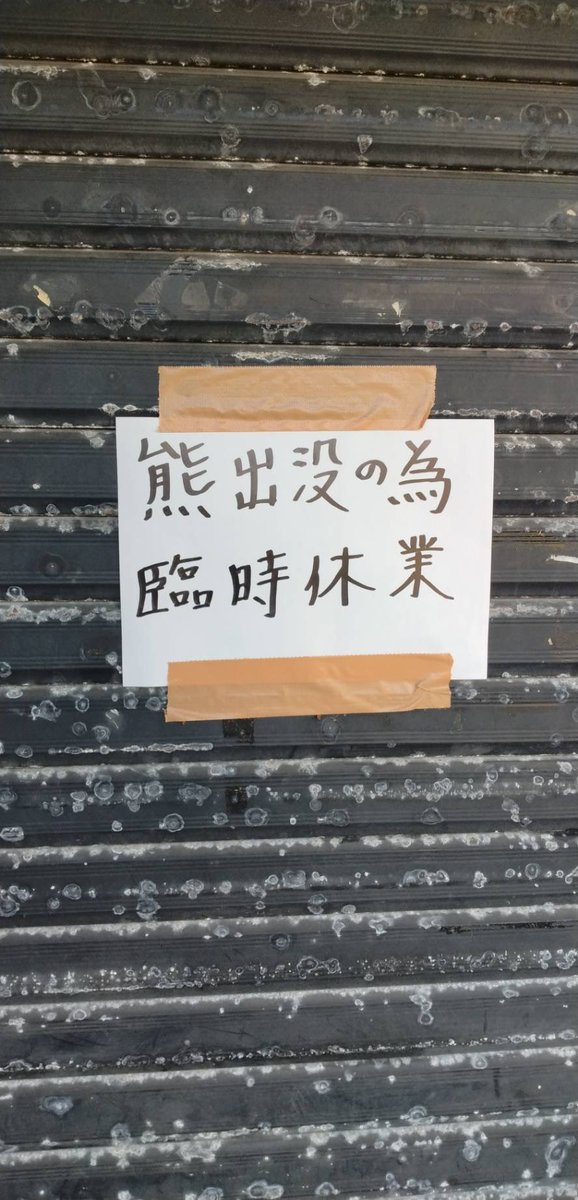 熊出没の為
臨時休業